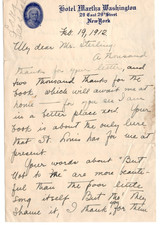 Hotel Martha Washington
29 East 29th Street
New York
Feb. 19, 1912
My dear Mr. Sterling
A thousand
thanks for your letter, and
two thousand thanks for the
book, which will await me at
home — for you see I am
in a better place now. Your
book is about the only lure
that St. Louis has for me at
present.
Your words about "But
Not to Me" are more beauti-
ful than the poor little
song itself. But tho' they
shame it, I thank you for them